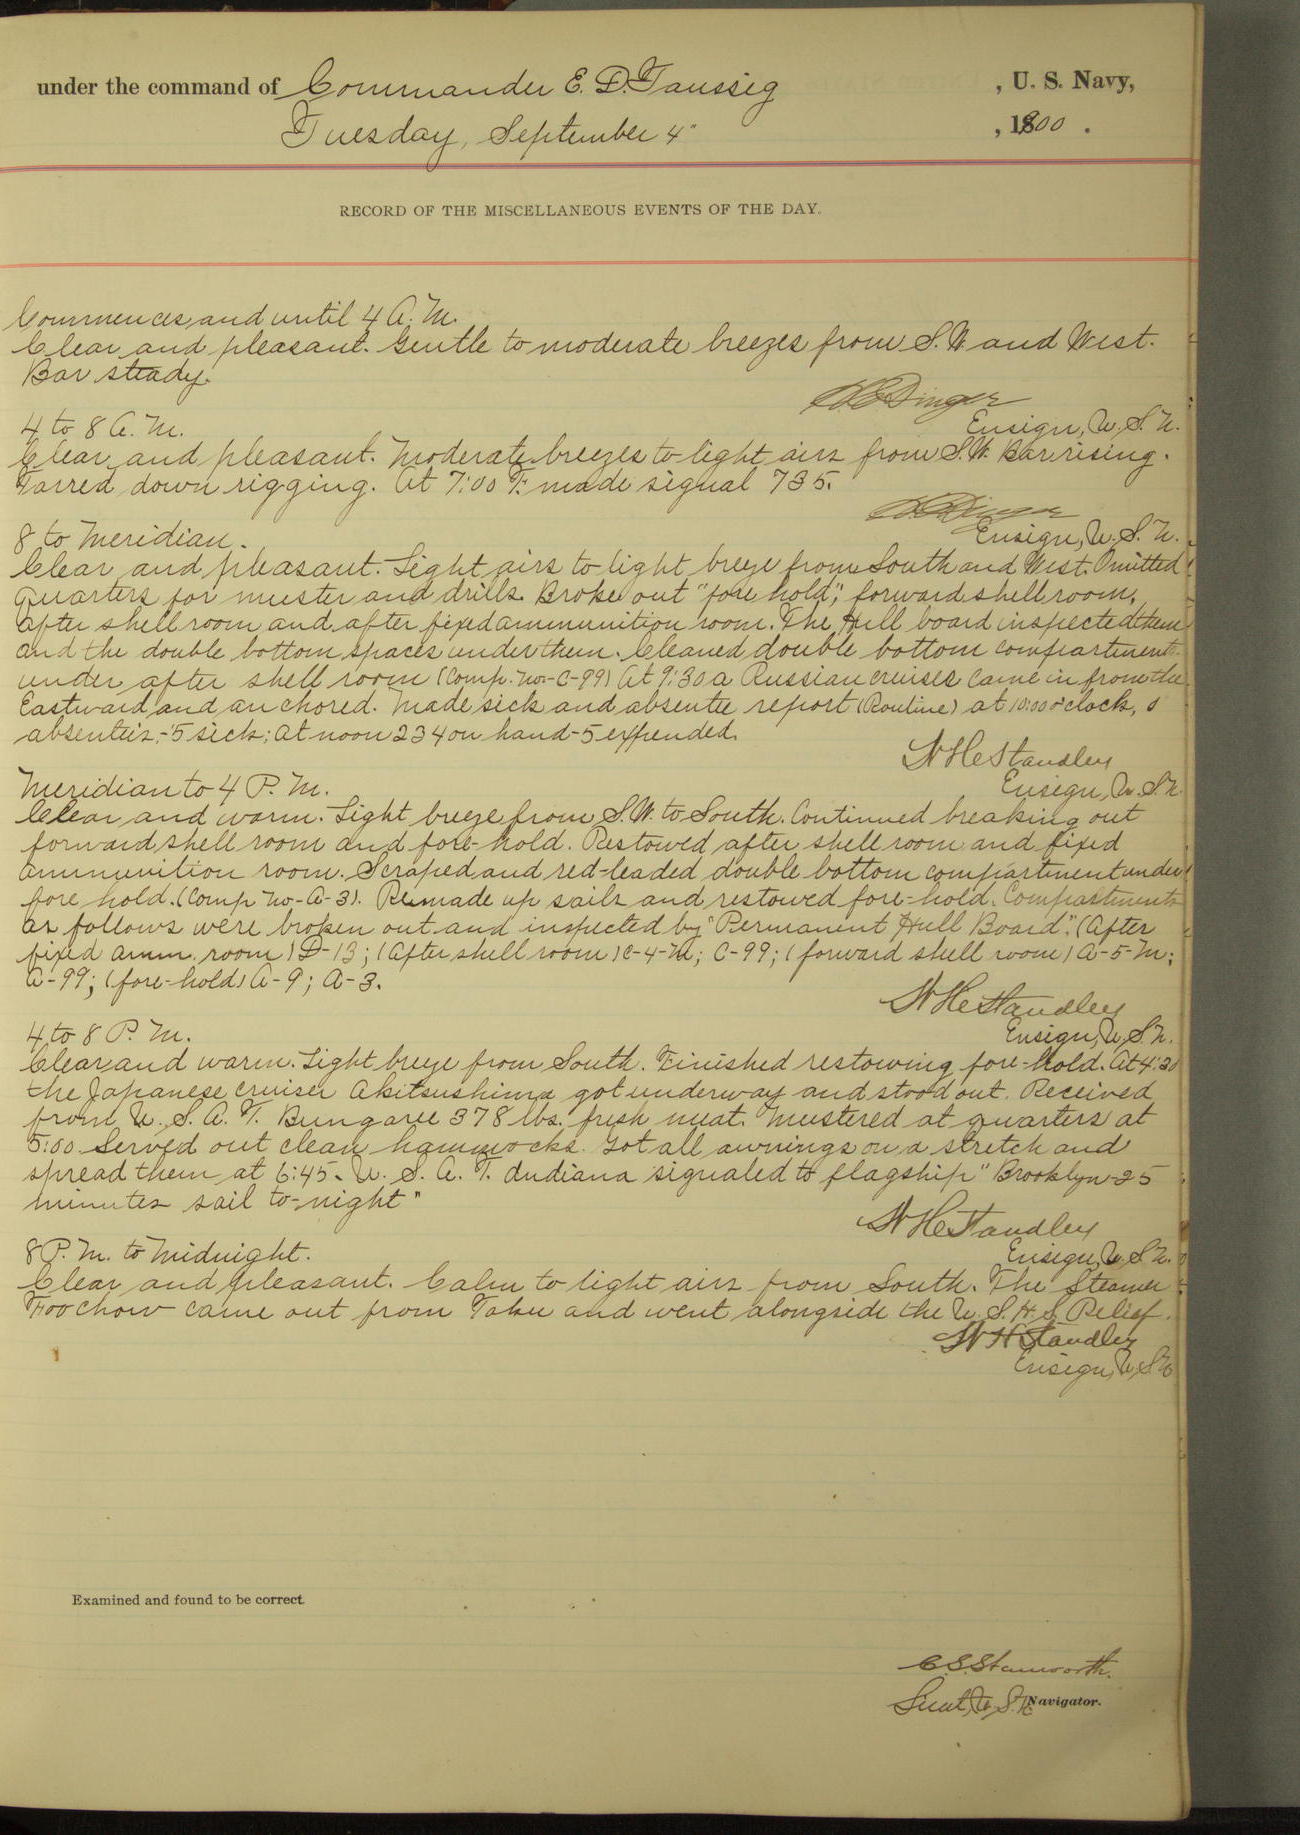 under the command of Commander E. D. Taussig , U. S. Navy,
Tuesday, September 4" , 1900 .
RECORD OF THE MISCELLANEOUS EVENTS OF THE DAY.
Commences and until 4 A. M.
Clear and pleasant. Gentle to moderate breezes from S.W. and West.
Bar steady.
H C Dinger
Ensign, U. S. N.
4 to 8 A. M.
Clear and pleasant. Moderate breezes to light airs from S.W. Bar rising.
Tarred down rigging. At 7:00 F. made signal 735.
H C Dinger
Ensign, U. S. N.
8 to Meridian.
Clear and pleasant. Light airs to light breeze from South and West. Omitted
quarters for muster and drills. Broke out "fore hold", forward shell room,
after shell room and after fixed ammunition room. The Hull board inspected them
and the double bottom spaces under them. Cleaned double bottom compartments
under after shell room (Comp. No-C-99) At 9:30 a Russian cruiser came in from the
Eastward and anchored. Made sick and absentee report (Routine) at 10:00 o'clock, 0
absentees,-5 sick; at noon 234 on hand-5 expended.
W H Standley
Ensign, U. S. N.
Meridian to 4 P. M.
Clear and warm. Light breeze from S.W. to South. Continued breaking out
forward shell room and fore-hold. Restowed after shell room and fixed
ammunition room. Scraped and red-leaded double bottom compartment under
fore hold. (Comp No-A-3). Remade up sails and restowed fore-hold. Compartments
as follows were broken out and inspected by "Permanent Hull Board". (After
fixed amm. room) D-13; (After shell room) C-4-M; C-99; (forward shell room) A-5-M;
A-99; (fore-hold) A-9; A-3.
W H Standley
Ensign, U. S. N.
4 to 8 P. M.
Clear and warm. Light breeze from South. Finished restowing fore-hold. At 4:30
the Japanese cruiser Akitsushima got underway and stood out. Received
from U. S. A. T. Bungaree 378 lbs. fresh meat. Mustered at quarters at
5:00 Served out clean hammocks. Got all awnings on a stretch and
spread them at 6:45. U. S. A. T. Indiana signaled to flagship "Brooklyn 25
minutes sail to-night"
W H Standley
Ensign, U. S. N.
8 P. M. to Midnight.
Clear and pleasant. Calm to light airs from South. The Steamer
Foochow came out from Taku and went alongside the U. S. H. S. Relief.
W H Standley
Ensign, U. S. N.
Examined and found to be correct.
C. S. Stanworth.
Lieut, U. S. N. Navigator.